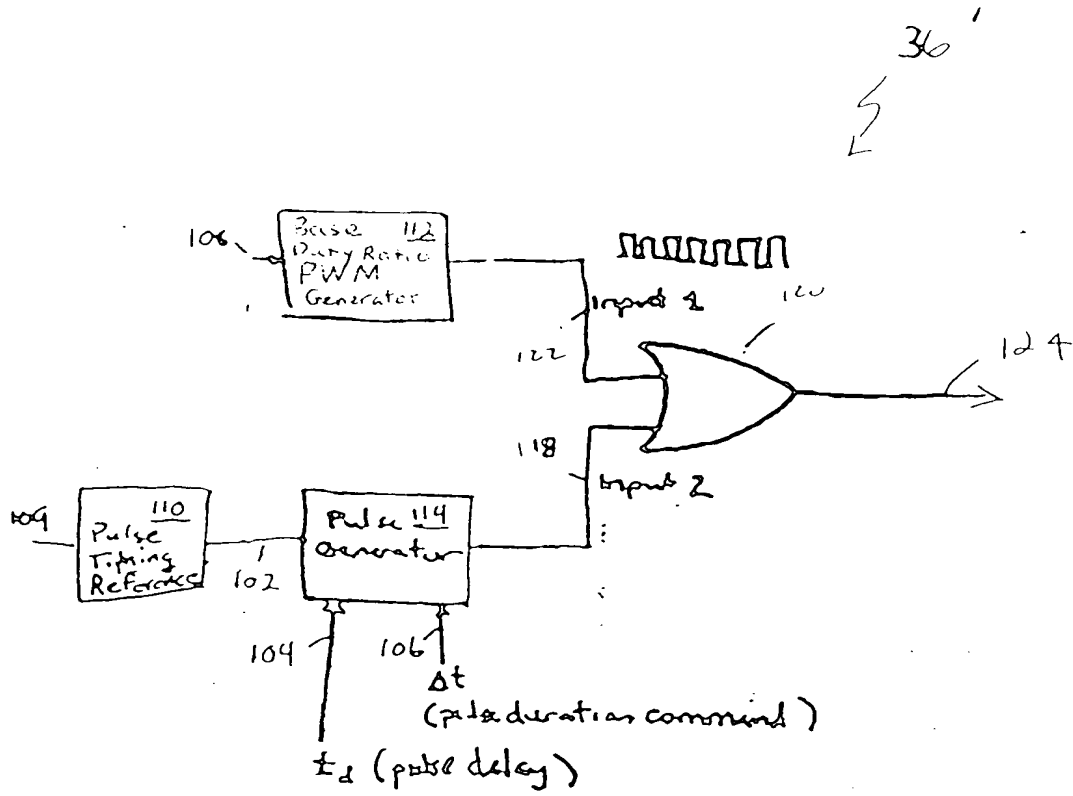 36'
Base 112
Duty Ratio
PWM
Generator
106
Input 1
120
122
124
118
Input 2
109
110
Pulse
Timing
Reference
102
Pulse 114
Generator
104
106
Δt
(pulse duration command)
td (pulse delay)